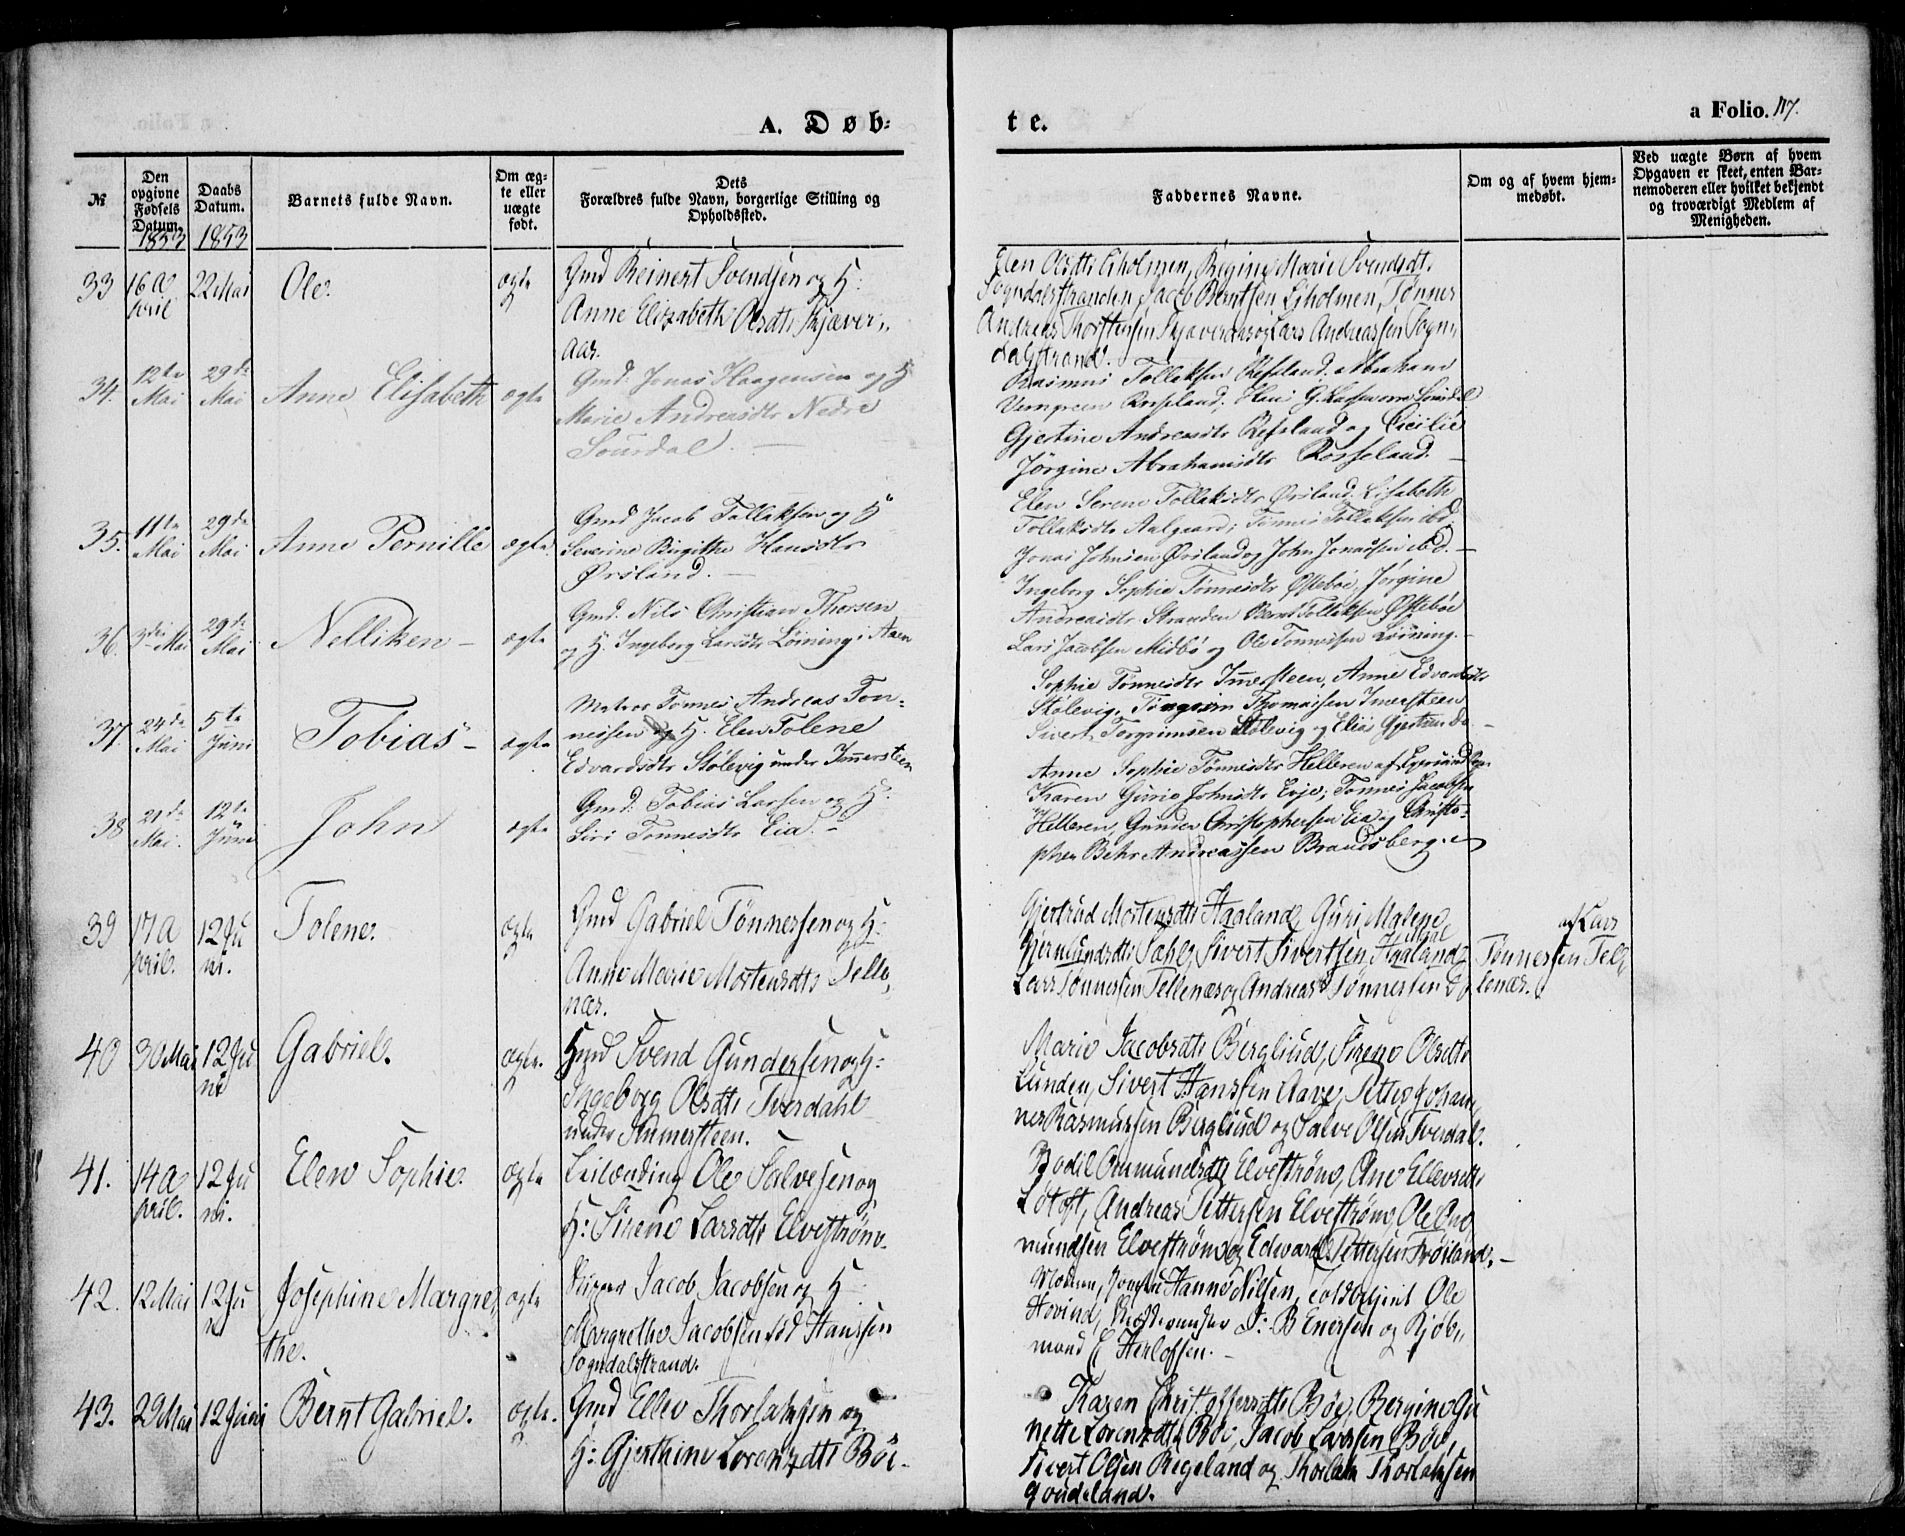 A. Døb-
te.
a Folio. 117.
№
Den opgivne Fødsels Datum.
1853
Daabs Datum.
1853
Barnets fulde Navn.
Om ægte eller uægte født.
Dets
Forældres fulde Navn, borgerlige Stilling og
Opholdssted.
Faddernes Navne.
Om og af hvem hjemmedøbt.
Ved uægte Børn af hvem
Opgaven er skeet, enten Barnemoderen eller hvilket bekjendt
og troværdigt Medlem af
Menigheden.
33 16 April 22 Mai Ole. ægte
Gmd Reinert Svendsen og H:
Anne Elizabeth Olsdtr Skjæver-
aas.
Elen Olsdtr Eholmen, Regine Marie Svendsdt.
Sogndalsstranden, Jacob Berntsen Eholmen, Tønnes
Andreas Thorstensen Skjæveraas og Lars Andreassen Sogn-
dalsstrand.
34. 12te Mai 29de Mai Anne Elisabeth ægte
Gmd: Jonas Haagensen og H
Marie Andreasdtr Nedre
Sourdal.
Rasmus Tollaksen Refsland, Abraham
Gjertine Andreasdtr Refsland og Cicilie
Jørgine Abrahamsdtr Rosseland.
35. 11te Mai 29de Mai Anne Pernille ægte
Gmd Jacob Tollaksen og H
Severine Birgithe Hansdtr
Ørsland.
Elen Serene Tollaksdtr Ørsland, Lisabeth
Tollaksdtr Aalgaard, Tønnes Tollaksen ibd.
Jonas Johnsen Ørsland og John Jonassen ibd.
36. 3die Mai 29de Mai Nelliken ægte
Gmd. Nils Christian Thorsen
og H. Ingeborg Larsdtr Løining i Aaen
Ingeborg Sophie Tønnesdtr Østebøe, Jørgine
Andreasdtr Stranden Bernt Tollaksen Østebøe
Lars Jacobsen Midbø og Ole Tønnesen Løining.
37. 24de Mai 5te Juni Tobias ægte
Matros Tønnes Andreas Tøn-
nessen og H. Elen Tolene
Edvardsdtr Stølevig under Immersteen
Sophie Tønnesdtr Immersteen, Anne Edvardsdtr
Stølevig, Torgrim Thomassen Imersteen
Sivert Torgrimsen Stølevig og Elias
38 21de Mai. 12te Juni John ægte
Gmd. Tobias Larsen og H.
Siri Tønnesdtr Eia.
Anne Sophie Tønnesdtr Helleren af
Karen Gurie Johnsdtr Evje, Tønnes Jacobsen
Helleren, Gunder Christophersen Eia og Christo-
pher Behr Andreassen Brandsberg.
39 17 April. 12 Juni. Tolene. ægte
Gmd Gabriel Tønnessen og H:
Anne Marie Mortensdtr Telle-
næs.
Gjertrud Mortensdtr Haaland, Guri Malene
Gjermundsdtr Sæhl, Sivert Sivertsen Haaland,
Lars Tønnessen Tellenæs og Andreas Tønnessen
af Lars
Tønnessen Tel-
lenæs.
40 30 Mai 12 Juni Gabriel. ægte.
Hmd Svend Gundersen og H:
Ingeborg Olsdtr Tverdahl
under Immersteen.
Marie Jacobsdtr Bergliud, Sirene Olsdtr
Lunden, Sivert Hanssen Aave, Petter Johan-
nes Rasmussen Bergliud og Salve Olsen Tverdal.
41. 14 April. 12 Juni. Elen Sophie. ægte
Leilænding Ole Salvesen og
H: Sirene Larsdtr Elvestrøm.
Bodil Ommundsdtr Elvestrøm, Ane Ellevsdtr
Lotoft, Andreas Pettersen Elvestrøm, Ole Om-
mundsen Elvestrøm og Edvard Pettersen Frøisland.
42. 12 Mai 12 Jun Josephine Margre-
the. ægte
Skipper Jacob Jacobsen og H
Margrethe Jacobsen fød Hanssen
Sogndalsstrand.
Moderen, Jomfru Hanne Nilsen, Toldbetjent Ole
Hovind, J: B Enersen og Kjøb-
mand E Herlofsen.
43. 29 Mai 12 Juni Bernt Gabriel. ægte.
Gmd Ellev Thorlaksen og
H: Gjerthine Lorenzdtr Bøe.
Karen Christoffersdtr Bøe, Bergine Gu-
nette Lorenzdtr Bøe, Jacob Larsen Bøe,
Sivert Olsen Regeland og Thorlak Thorlaksen
Goudeland.